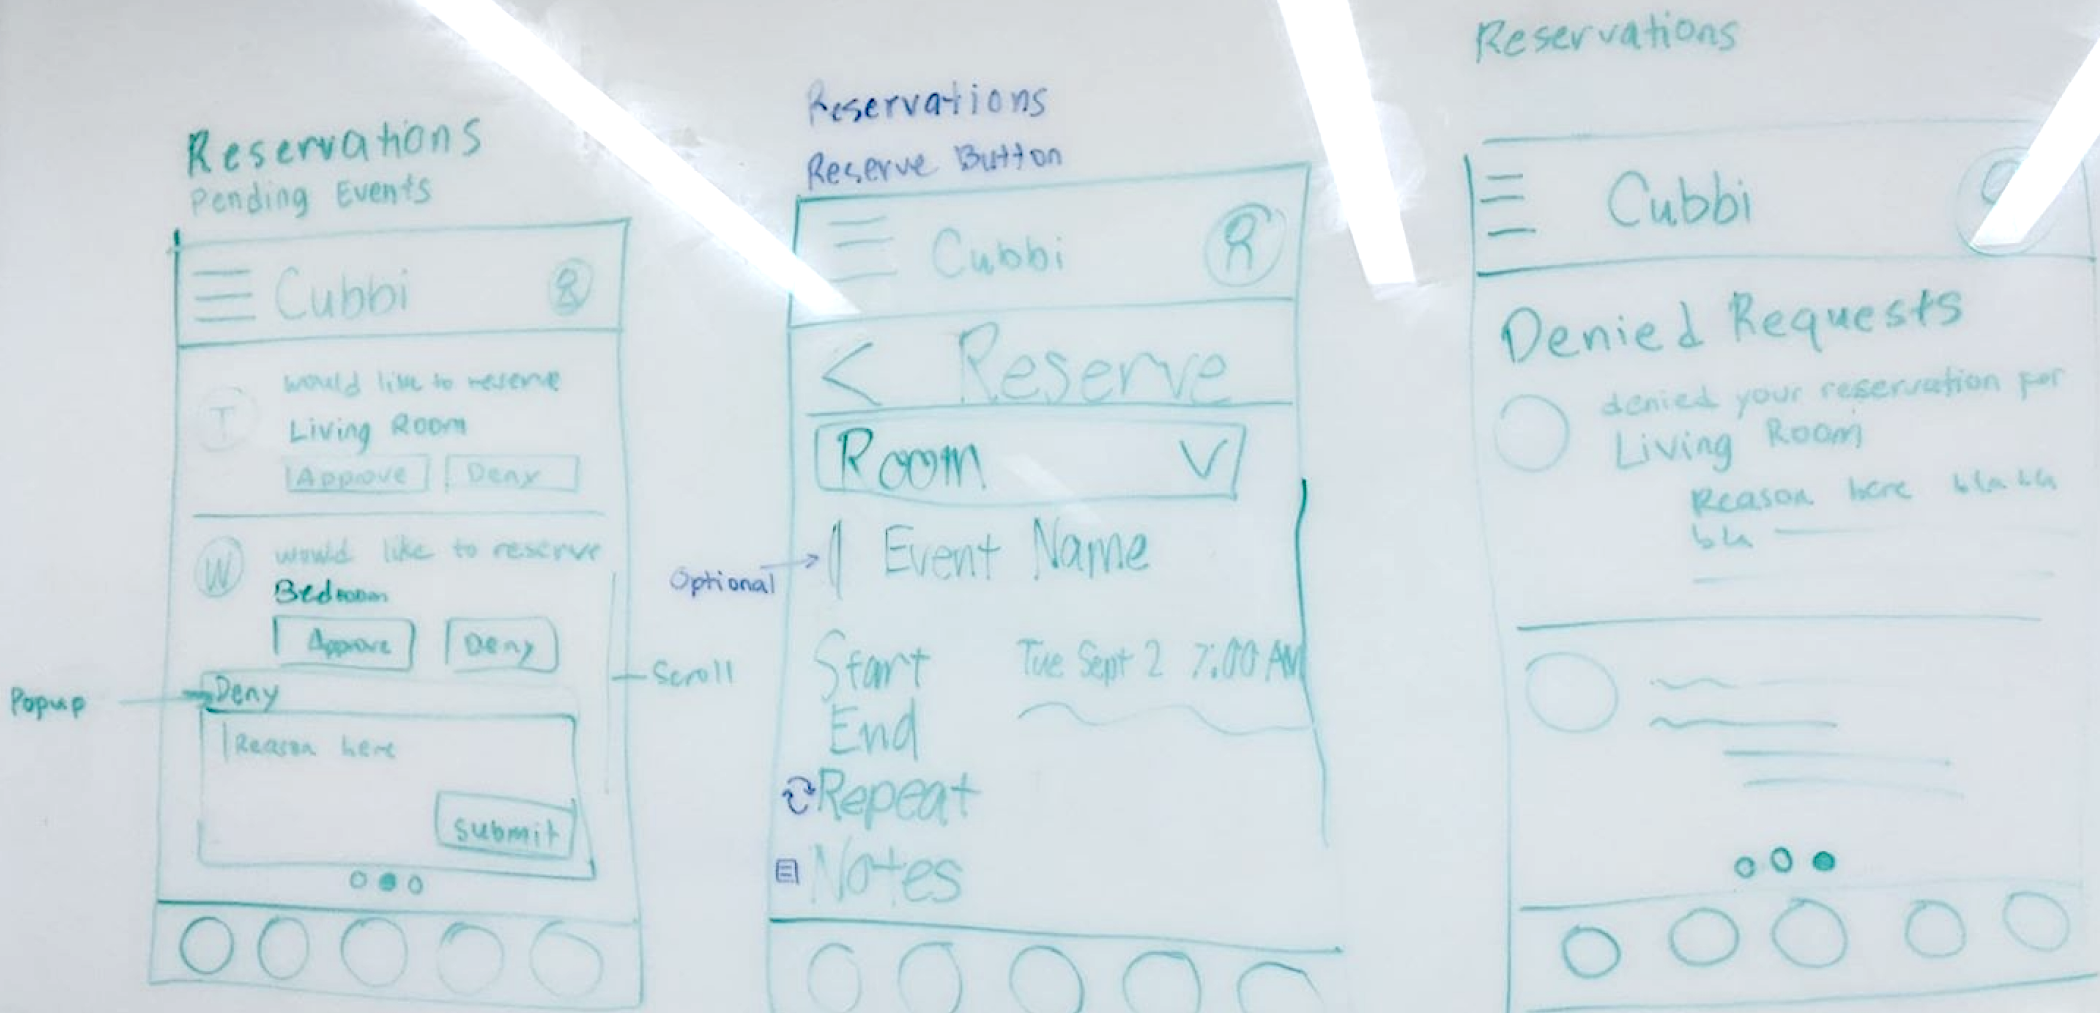 Reservations
Pending Events
Cubbi
T
would like to reserve
Living Room
Approve
Deny
W
would like to reserve
Bedroom
Approve
Deny
Scroll
Popup
Deny
Reason here
submit
Reservations
Reserve Button
Cubbi
< Reserve
Room
Optional
Event Name
Start Tue Sept 2 7:00 AM
End
Repeat
Notes
Reservations
Cubbi
Denied Requests
denied your reservation for
Living Room
Reason here bla bla
bla